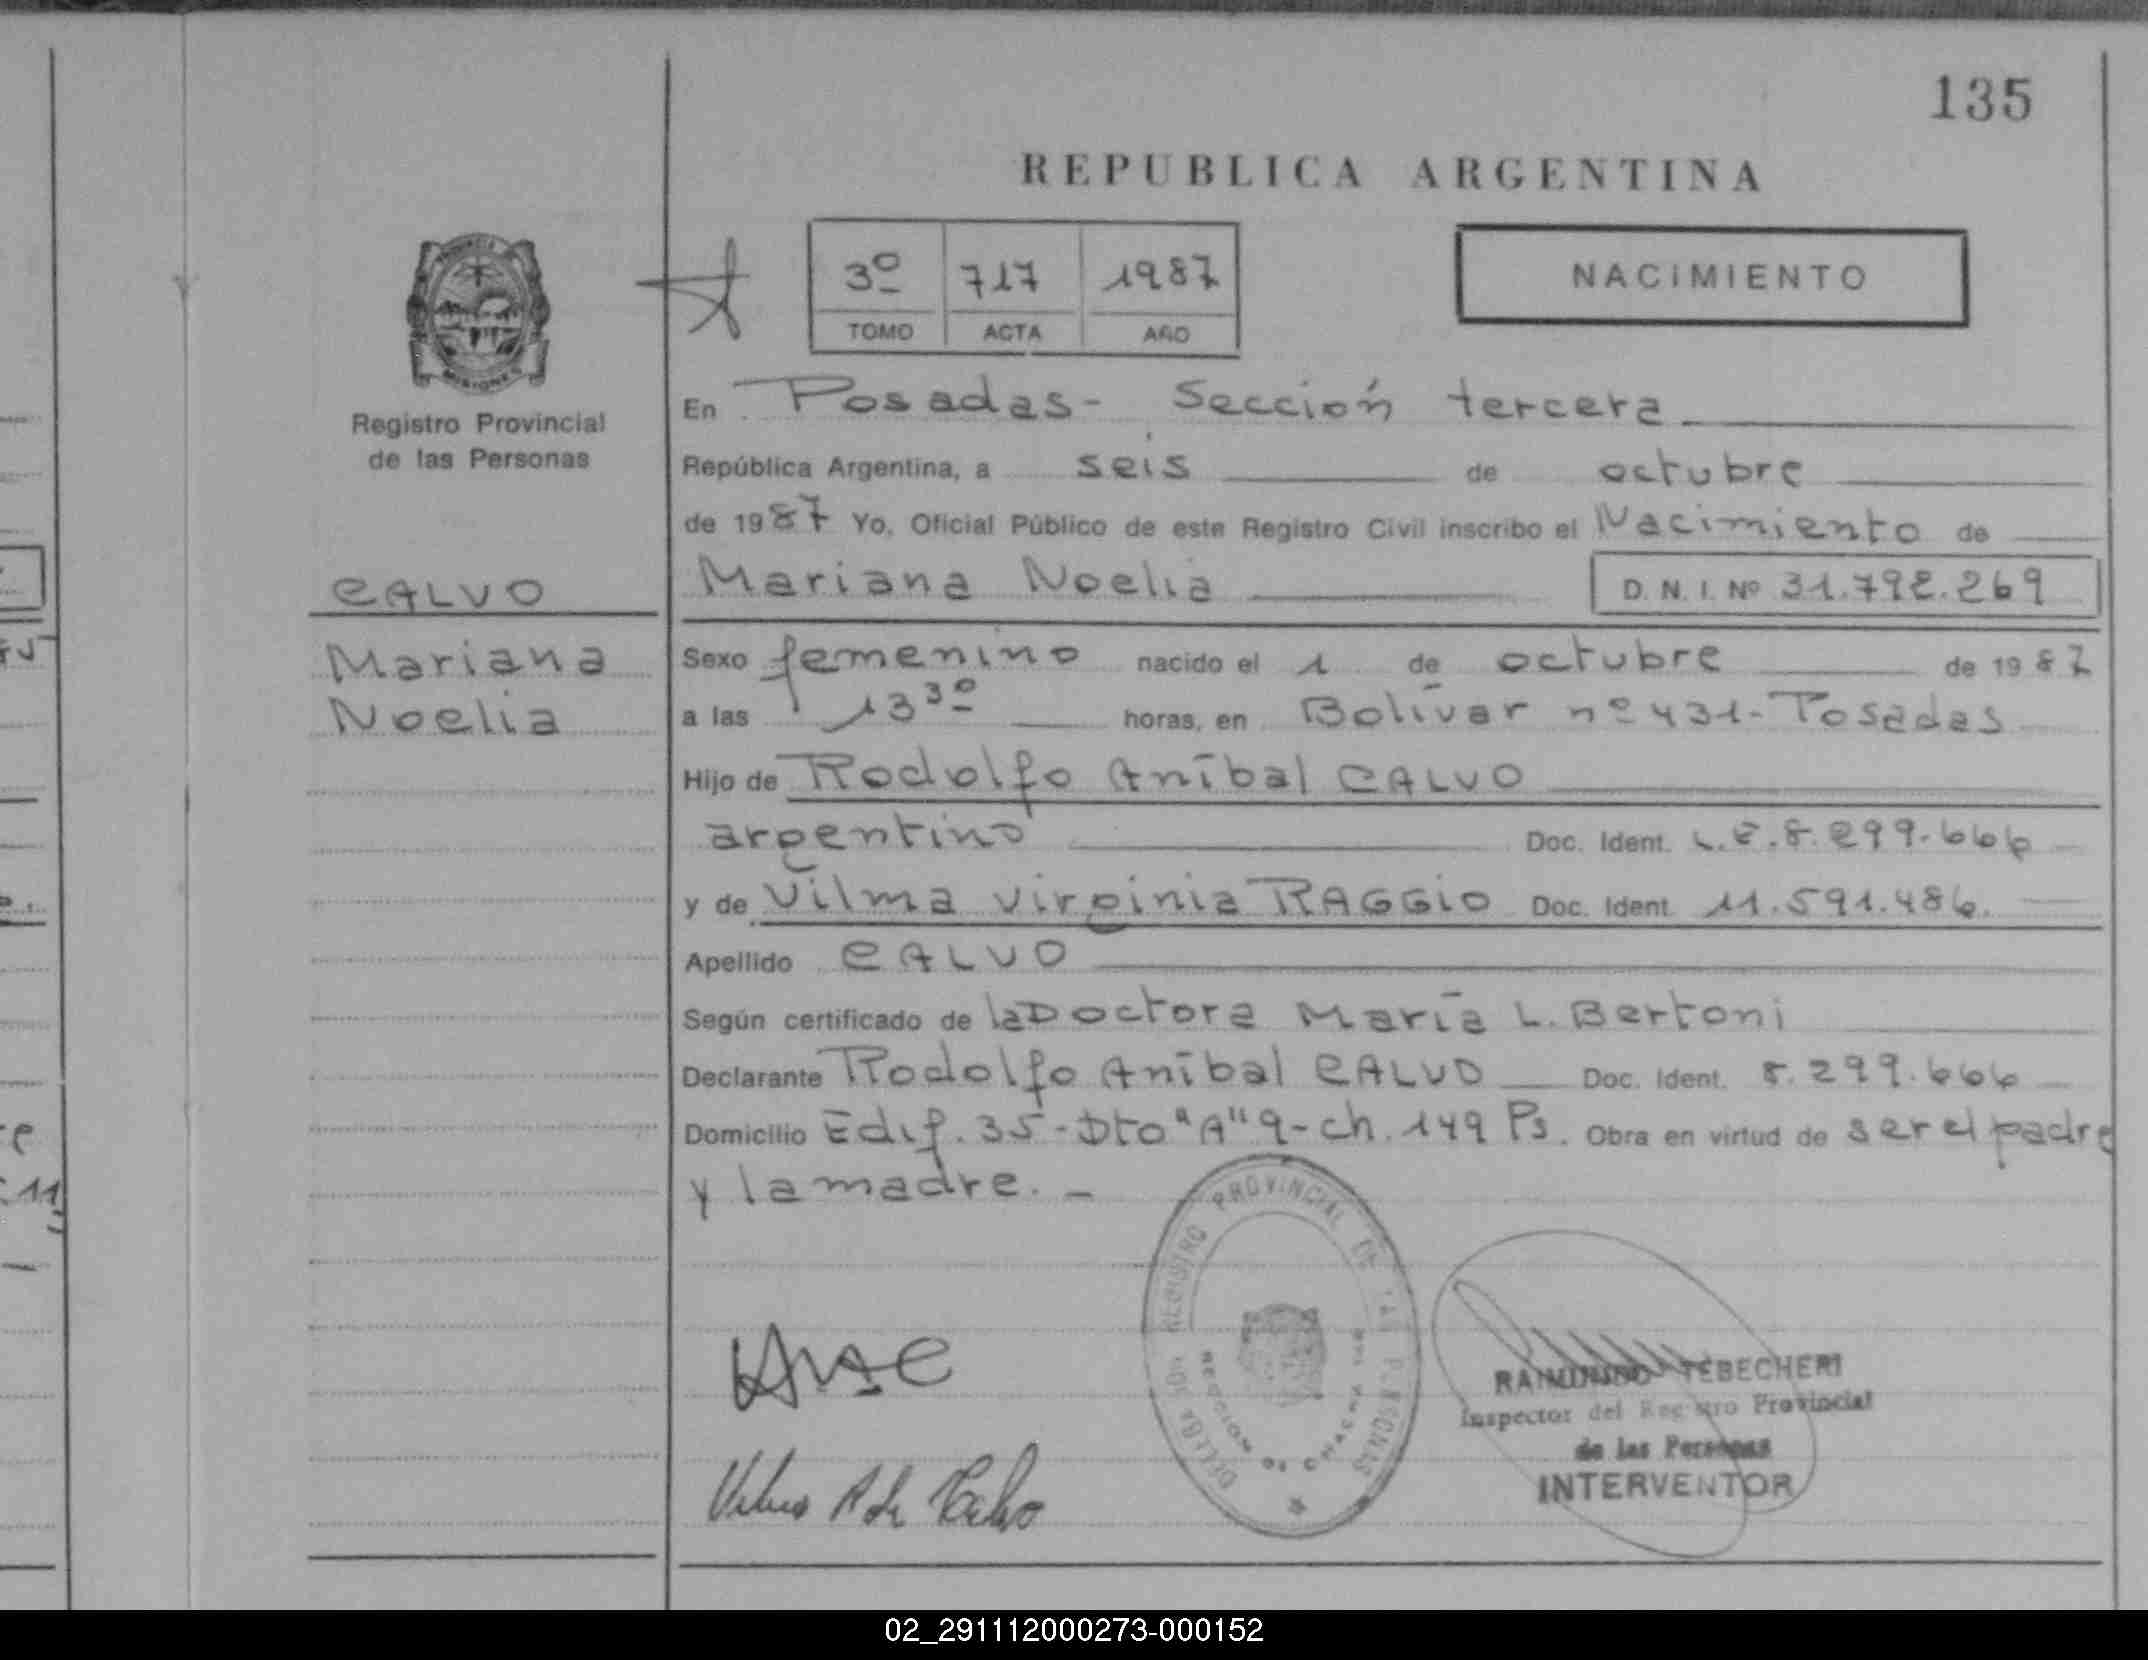 135
REPUBLICA ARGENTINA
3º 717 1987
TOMO ACTA AÑO
NACIMIENTO
PROVINCIA
MISIONES
Registro Provincial
de las Personas
CALVO
Mariana
Noelia
En Posadas - Sección tercera
República Argentina, a seis de octubre
de 1987 Yo, Oficial Público de este Registro Civil inscribo el Nacimiento de
Mariana Noelia D. N. I. Nº 31.792.269
Sexo femenino nacido el 1 de octubre de 1987
a las 13 30 horas, en Bolívar nº 431 - Posadas
Hijo de Rodolfo Aníbal CALVO
argentino Doc. Ident. L.E. 8.299.666
y de Vilma Virginia RAGGIO Doc. Ident. 11.591.486.
Apellido CALVO
Según certificado de la Doctora María L. Bertoni
Declarante Rodolfo Aníbal CALVO Doc. Ident. 8.299.666
Domicilio Edif. 35 - Dto "A" 9 - ch. 149 Ps. Obra en virtud de ser el padre
y la madre. -
REGISTRO PROVINCIAL DE LAS PERSONAS
RAIMUNDO TEBECHERI
Inspector del Registro Provincial
de las Personas
INTERVENTOR
Vilma R de Calvo
11
02_291112000273-000152